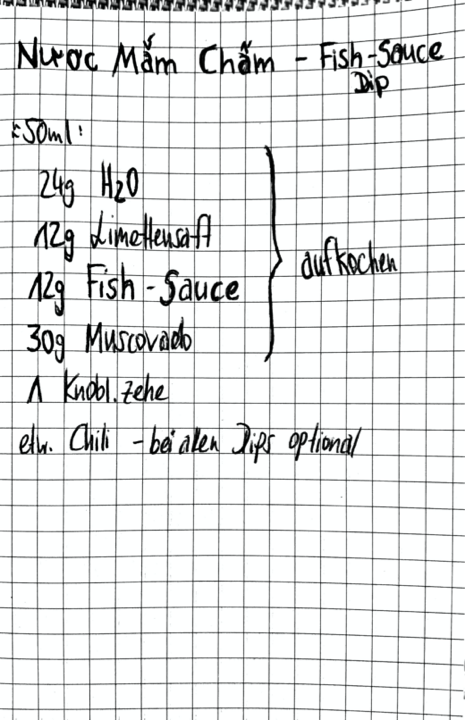 Nước Mắm Chấm - Fish-Sauce
Dip
≈50ml:
24g H2O
12g Limettensaft
12g Fish-Sauce
30g Muscovado
aufkochen
1 Knobl.zehe
etw. Chili - bei allen Dips optional